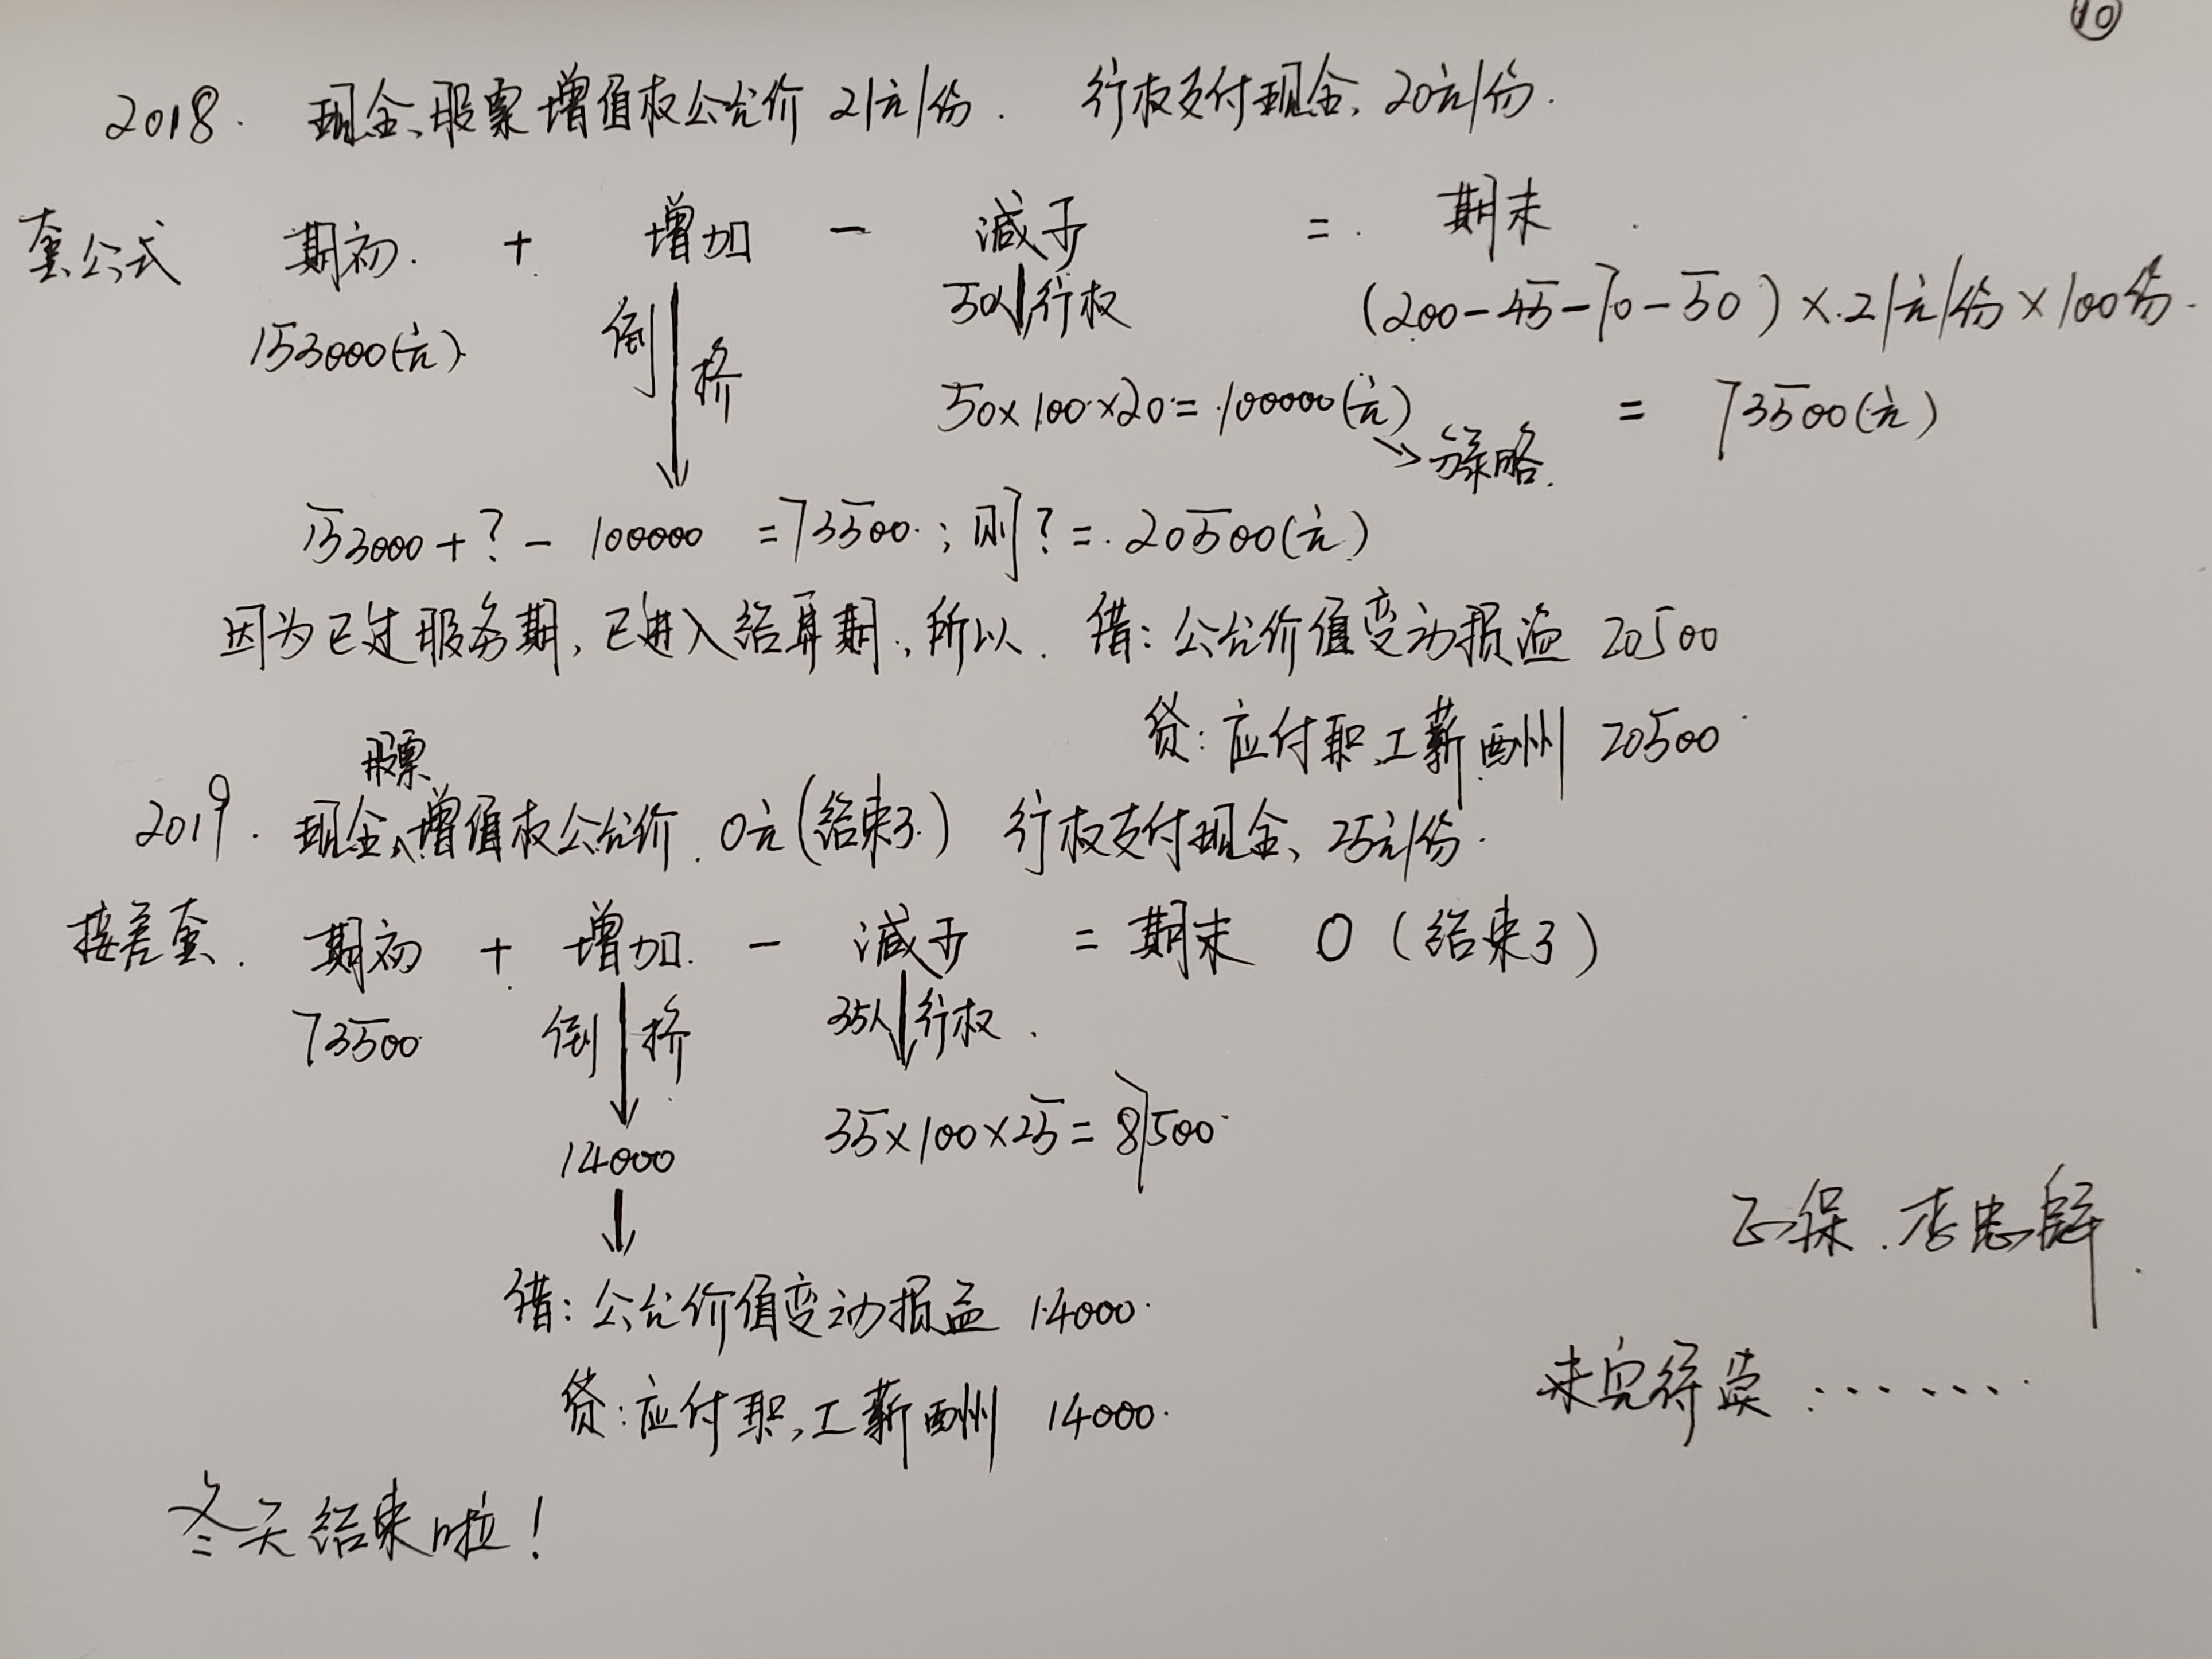 ⑩
2018. 现金、股票增值权公允价 21元/份. 行权支付现金, 20元/份.
套公式 期初. + 增加 - 减少 = 期末
50人 行权 (200-45-70-50)×21元/份×100份.
153000(元) 倒挤
50×100×20=100000(元) = 73500(元)
→分录略.
153000+?-100000 =73500; 则?=20500(元)
因为已过服务期, 已进入结算期, 所以. 借: 公允价值变动损益 20500
贷: 应付职工薪酬 20500
股票
2019. 现金、增值权公允价. 0元(结束了) 行权支付现金, 25元/份.
接着套. 期初 + 增加. - 减少 = 期末 0 (结束了)
73500 倒挤 35人 行权.
14000 35×100×25=87500
借: 公允价值变动损益 14000
贷: 应付职工薪酬 14000.
正保.李忠魁
未完待续:......
冬天结束啦!